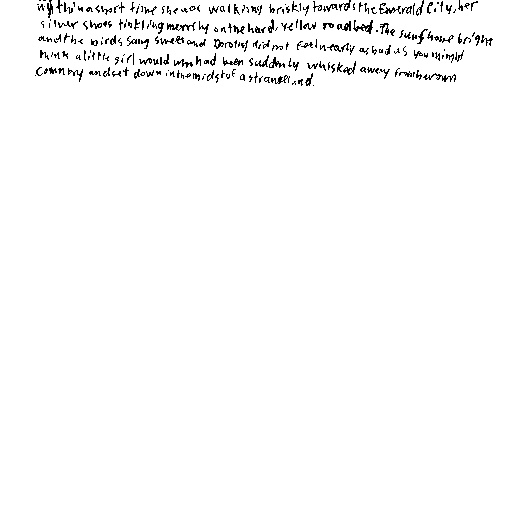 within a short time she was walking briskly towards the Emerald City, her
silver shoes tinkling merrily on the hard, yellow roadbed. The sun shone bright
and the birds sang sweet and Dorothy did not feel nearly as bad as you might
think a little girl would who had been suddenly whisked away from her own
country and set down in the midst of a strange land.